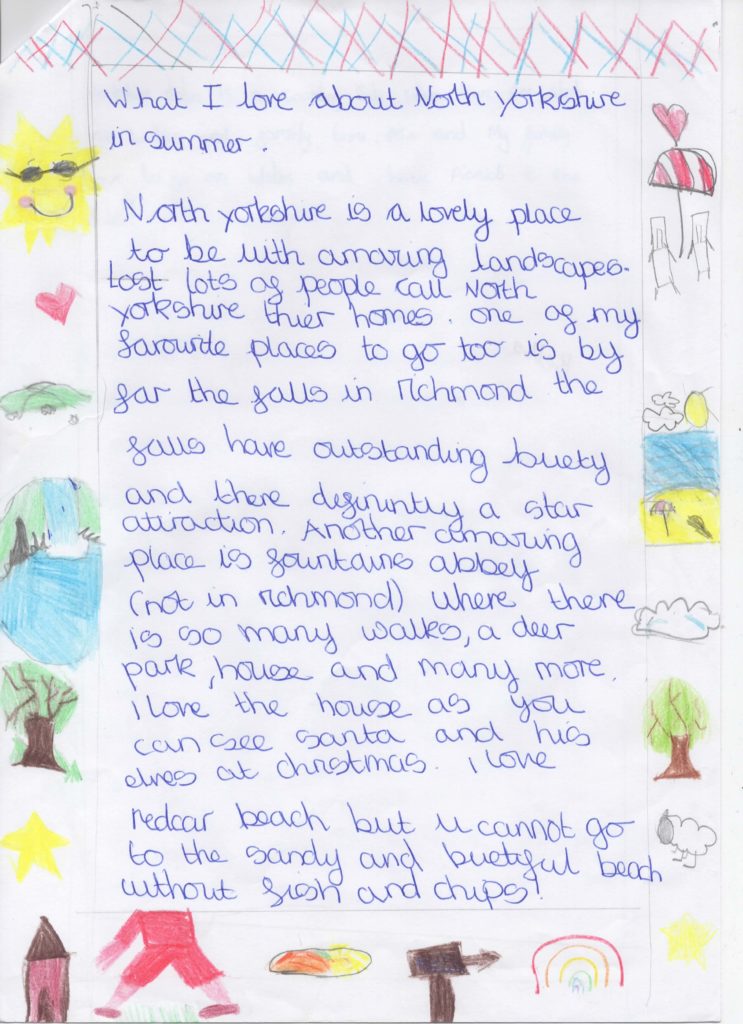 What I love about North yorkshire
in summer.
North yorkshire is a lovely place
to be with amazing landscapes.
tost lots of people call North
yorkshire thier homes. one of my
favourite places to go too is by
far the falls in richmond the
falls have outstanding buety
and there definintly a star
attraction. Another amazing
place is fountains abbey
(not in richmond) where there
is so many walks, a deer
park, house and many more.
i love the house as you
can see santa and his
elves at christmas. i love
redcar beach but u cannot go
to the sandy and buetiful beach
without fish and chips!